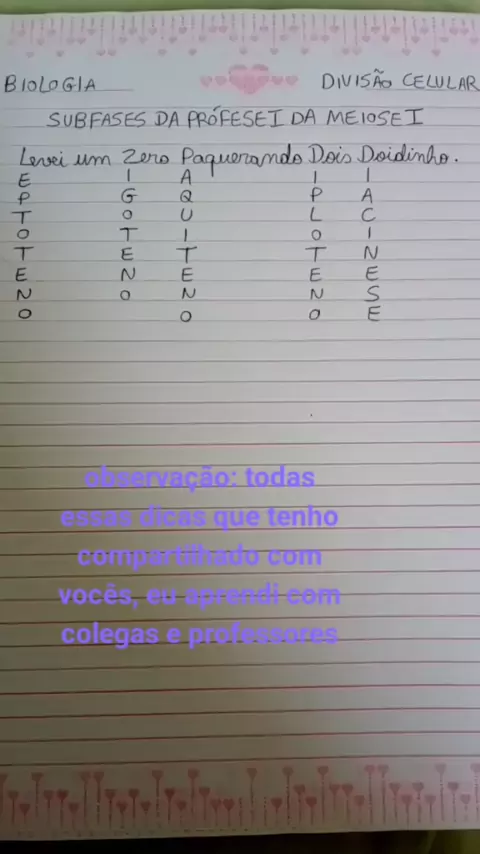 BIOLOGIA DIVISÃO CELULAR
SUBFASES DA PRÓFESE I DA MEIOSE I
Levei um Zero Paquerando Dois Doidinho.
E I A I I
P G Q P A
T O U L C
O T I O I
T E T T N
E N E E E
N O N N S
O O O E
observação: todas
essas dicas que tenho
compartilhado com
vocês, eu aprendi com
colegas e professores